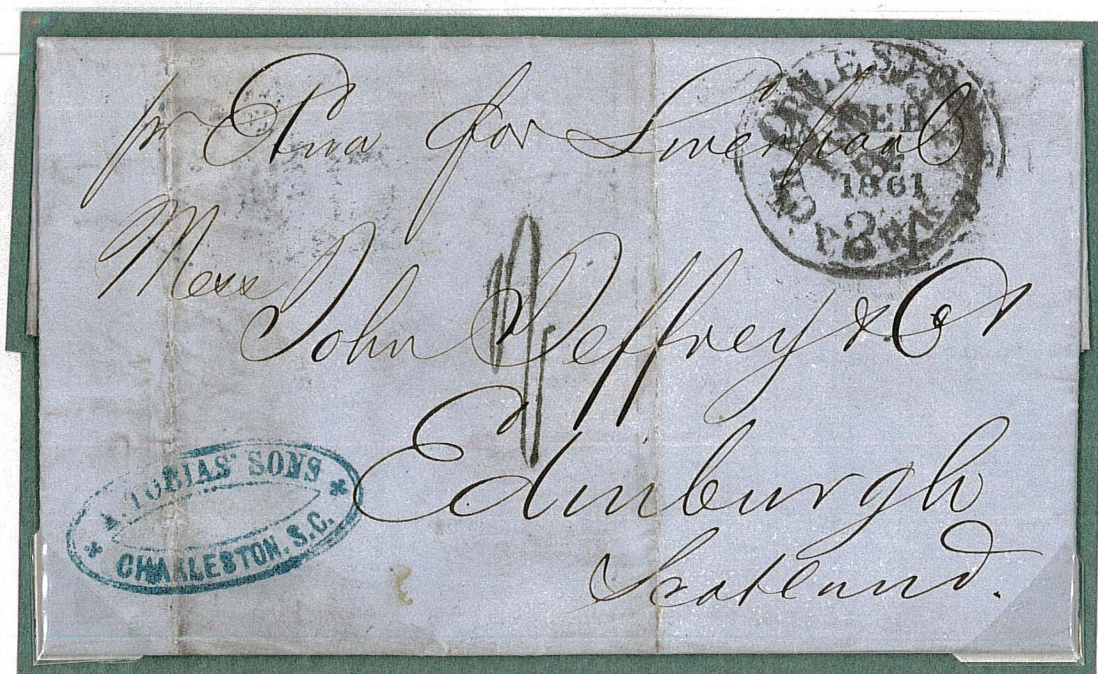 pr Etna for Liverpool
CHARLESTON
FEB
1861
Mess
John Jeffrey & Co
Edinburgh
Scotland.
A. TOBIAS' SONS
CHARLESTON, S.C.